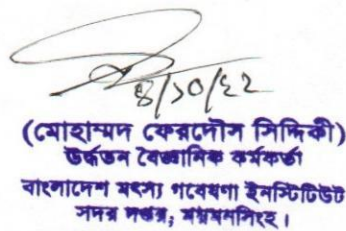 ৪/১০/২২
(মোহাম্মদ ফেরদৌস সিদ্দিকী)
উর্দ্ধতন বৈজ্ঞানিক কর্মকর্তা
বাংলাদেশ মৎস্য গবেষণা ইনস্টিটিউট
সদর দপ্তর, ময়মনসিংহ।